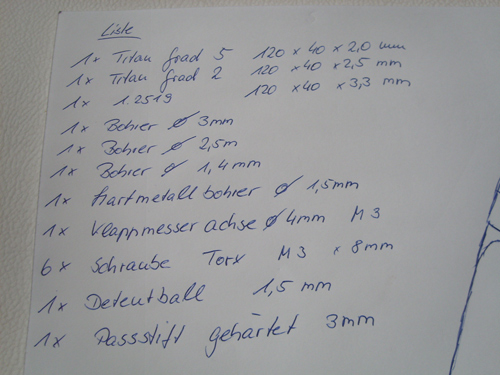 Liste
1x Titan Grad 5 120 x 40 x 2,0 mm
1x Titan Grad 2 120 x 40 x 2,5 mm
1x 1.2519 120 x 40 x 3,3 mm
1x Bohrer ø 3mm
1x Bohrer ø 2,5m
1x Bohrer ø 1,4mm
1x Hartmetallbohrer ø 1,5mm
1x Klappmesserachse ø 4mm M3
6x Schraube Torx M3 x 8mm
1x Detentball 1,5 mm
1x Passstift gehärtet 3mm